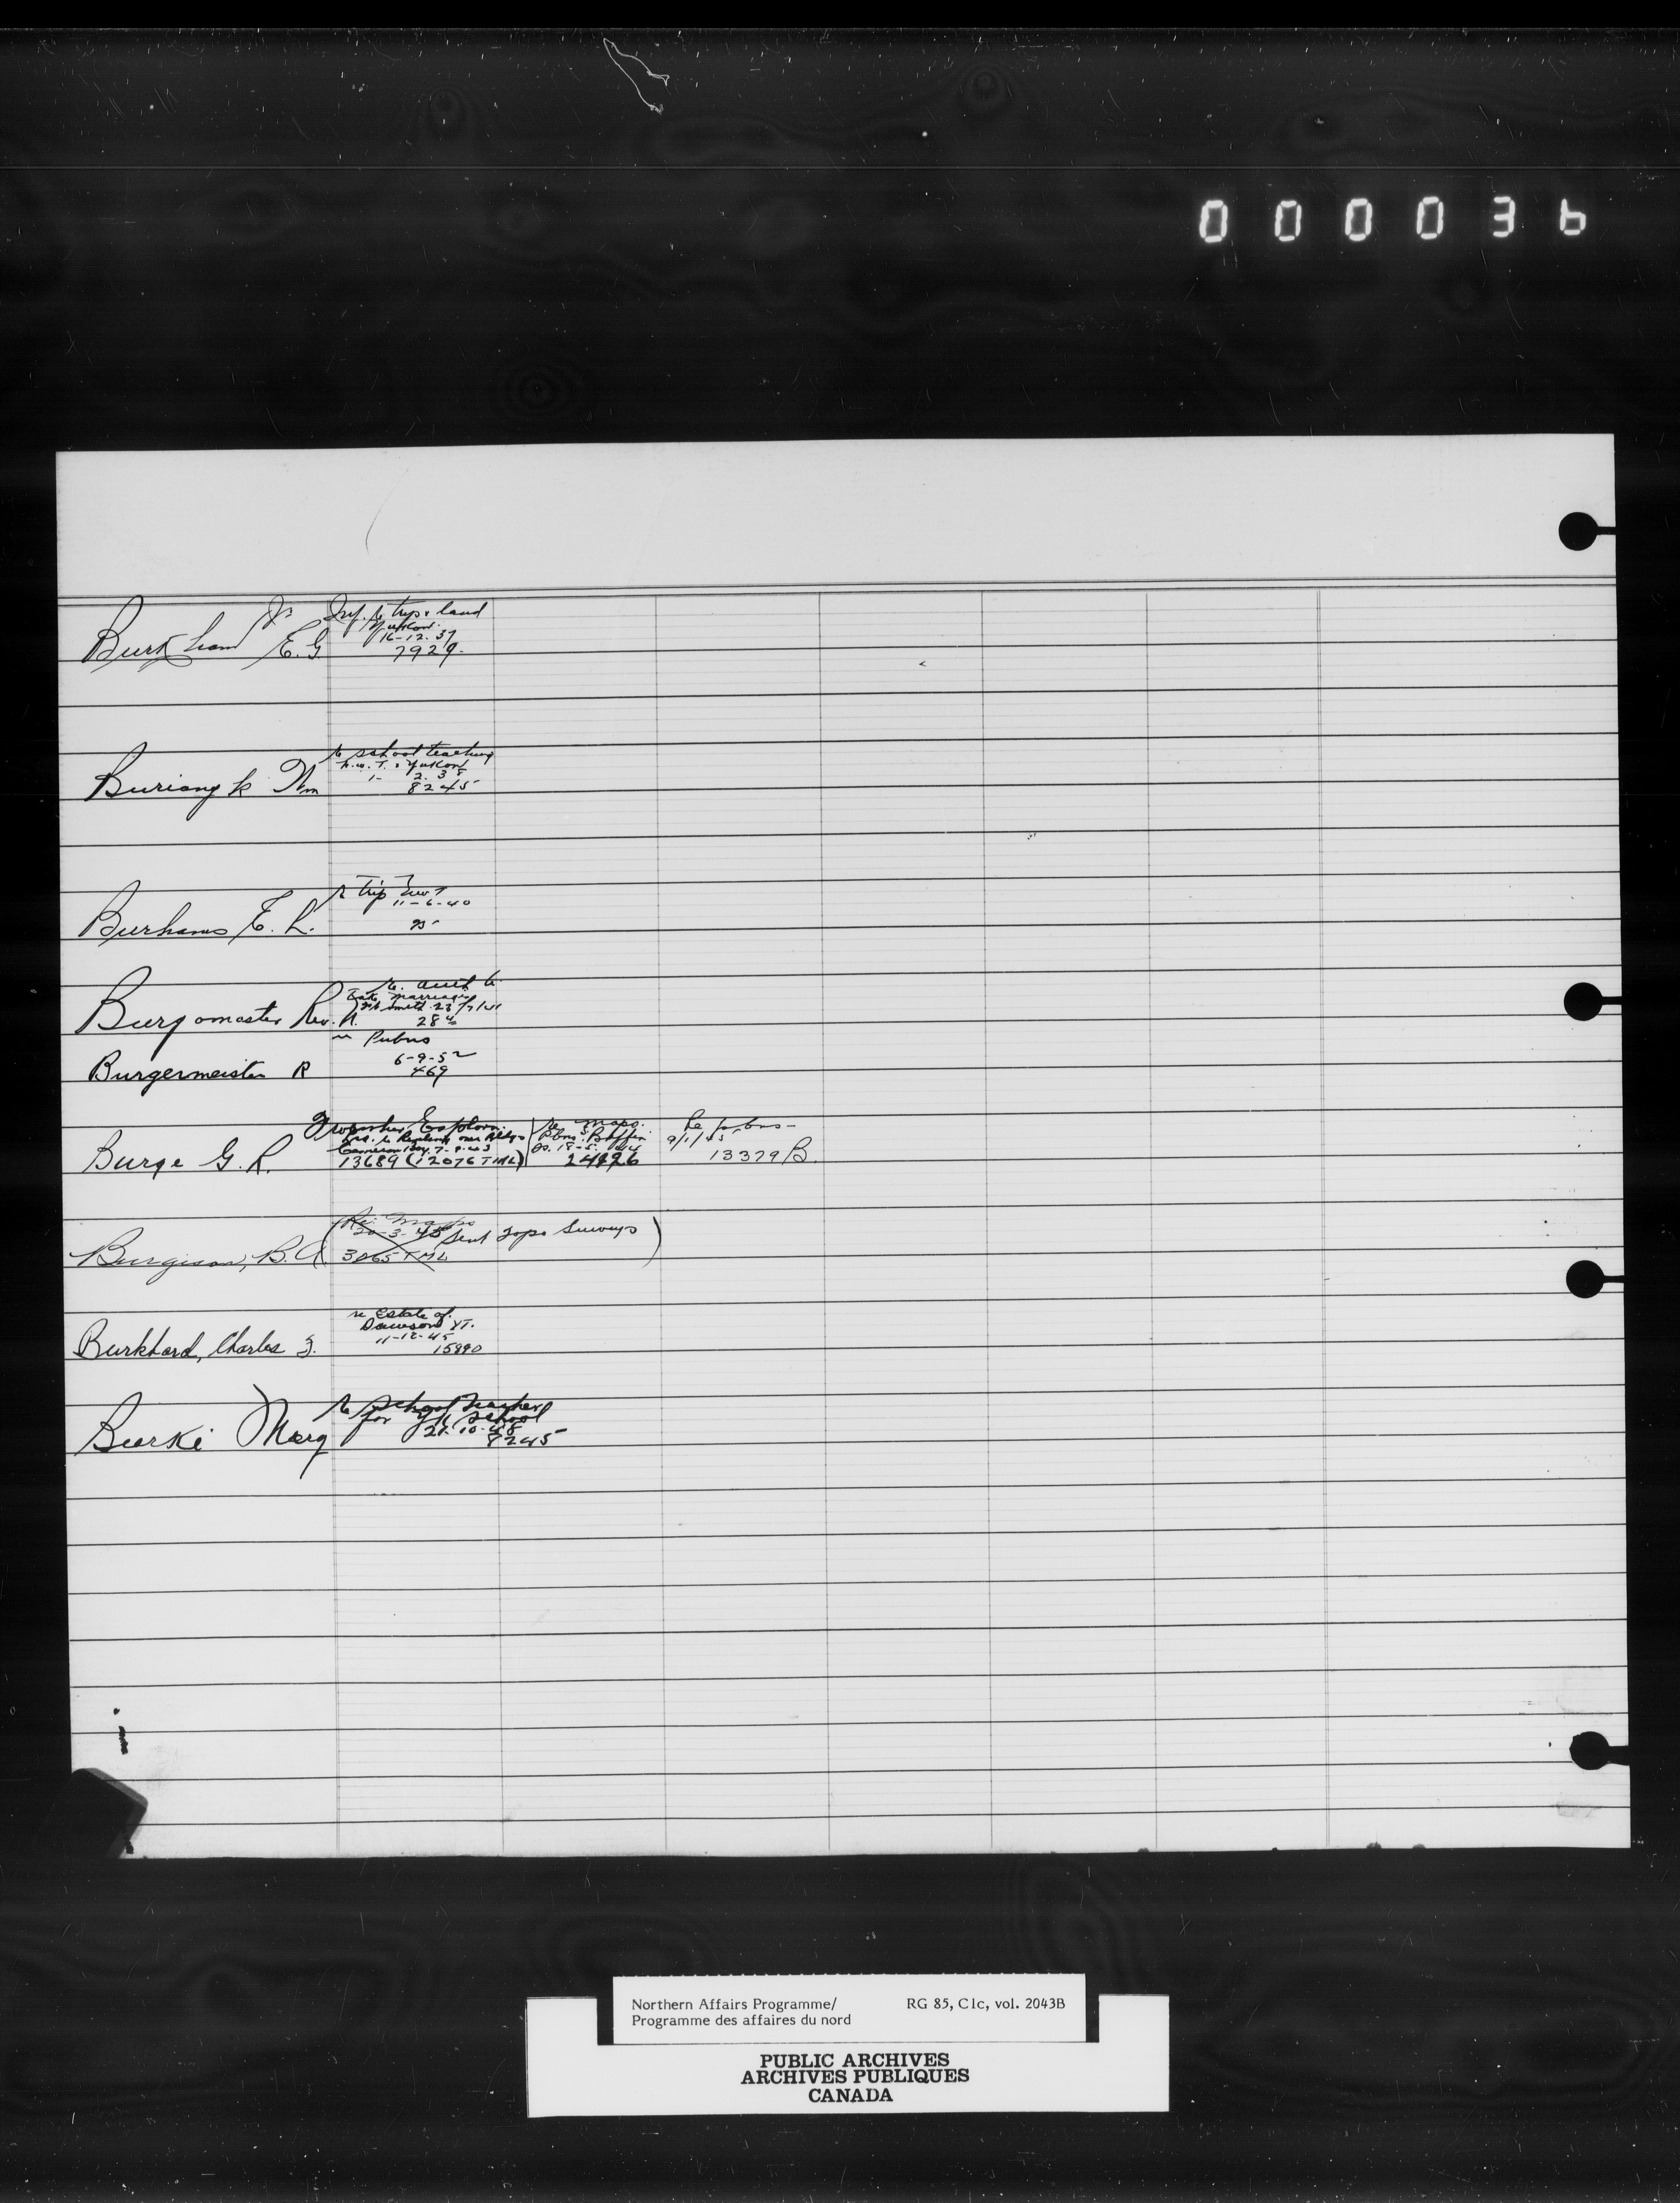 000036
Burkham Jr E.G.
Inf. re trip & land
Yukon
16-12-37
7929
Buriangk Wm
re school teaching
N.W.T. & Yukon
1- 2. 38
8245
Burhans E. L.
re trip NWT
11-6-40
Burgomaster Rev. R.
re. auth to
marriages
Ft Smith 23/7/41
28
Burgermeister R
re Pubns
6-9-52
469
Burge G. R.
re Replend
Cameron Bay. 7-8-43
13689 (12076 TML)
re maps.
Pbns. Baffin
Is. 18-5-1944
re pubns -
9/1/45
13379B
Burgison, B. A.
(Re: Maps
20-3-45 Sent Topo Surveys)
3065 TML
Burkhard, Charles J.
re Estate of.
Dawson YT.
11-12-45
15890
Burke Marg
re School Teacher
for YK School
21-10-48
8245
Northern Affairs Programme/ RG 85, C1c, vol. 2043B
Programme des affaires du nord
PUBLIC ARCHIVES
ARCHIVES PUBLIQUES
CANADA